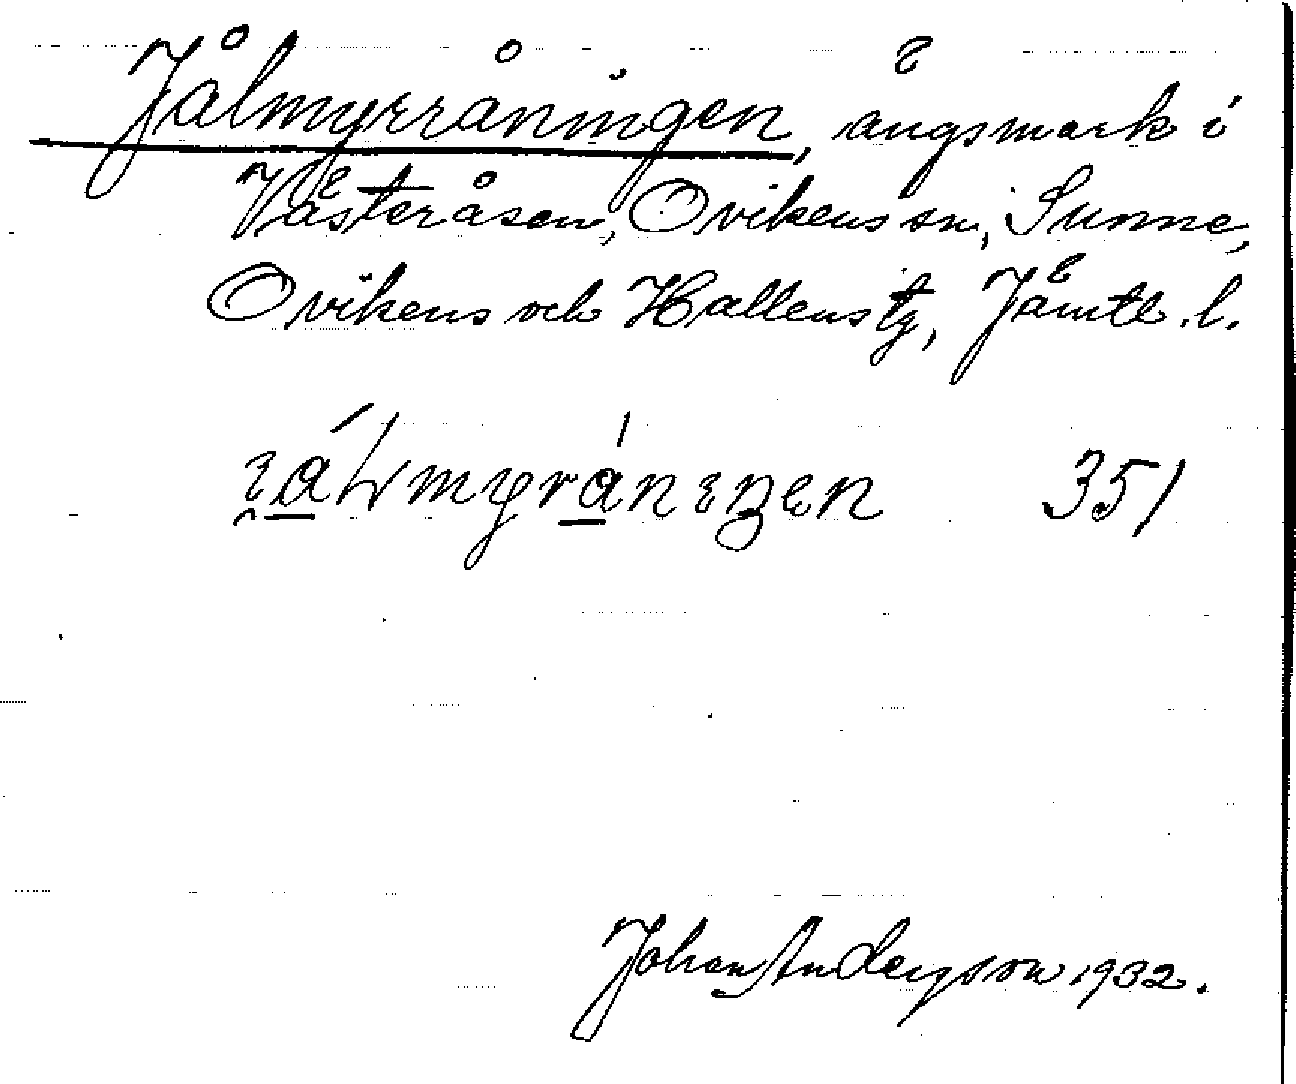 Jålmyrråningen, ängsmark i
Västeråsen, Ovikens sn, Sunne,
Ovikens och Hallens tg, Jämtl. l.
351
Johan Andersson 1932.